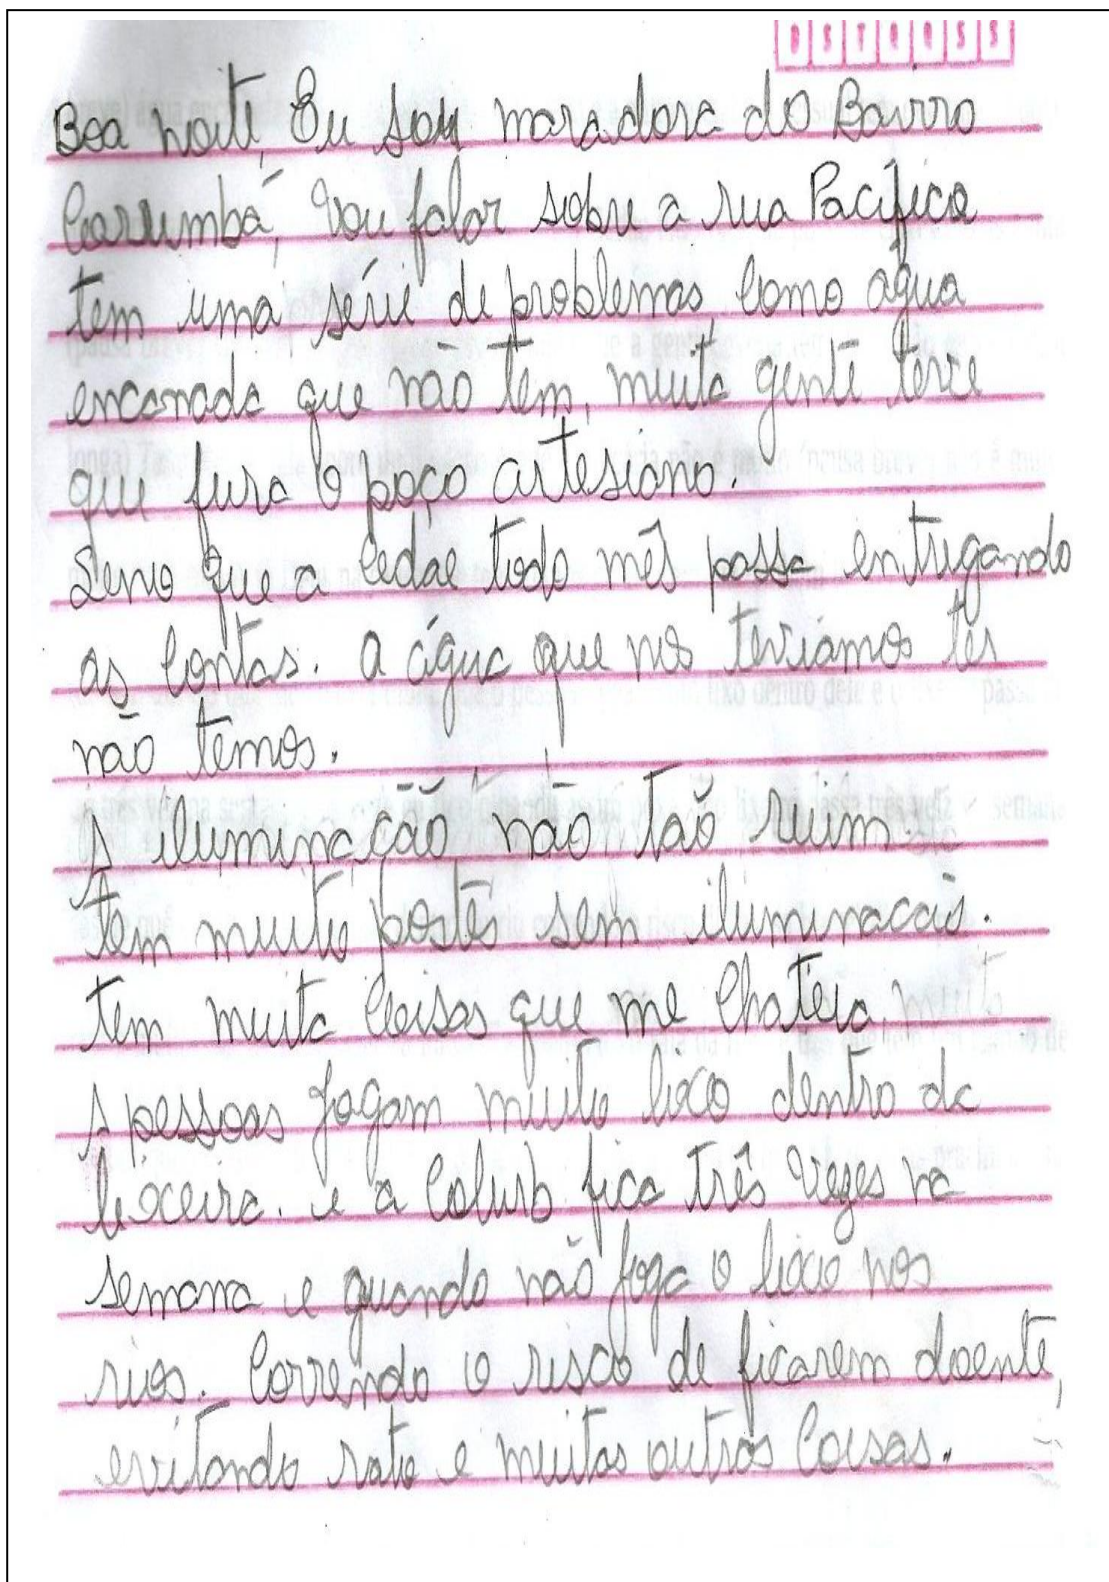 D S T Q Q S S
Boa noite, Eu sou moradora do Bairro
Corumbá, vou falar sobre a rua Pacífica
tem uma série de problemas como agua
encanada que não tem, muita gente teve
que fura o poço artesiano.
Seno que a Cedae todo mês passa entregando
as contas. a água que nos teriamos ter
não temos.
A iluminação não tão ruim.
tem muito poste sem iluminacaõ.
tem muita coisas que me chateia, muito
A pessoas jogam muito lixo dentro da
lixeira. e a Colurb fica três vezes na
semana e quando não joga o lixio nos
rios. Correndo o risco de ficarem doente,
evitando rato e muitas outras coisas.